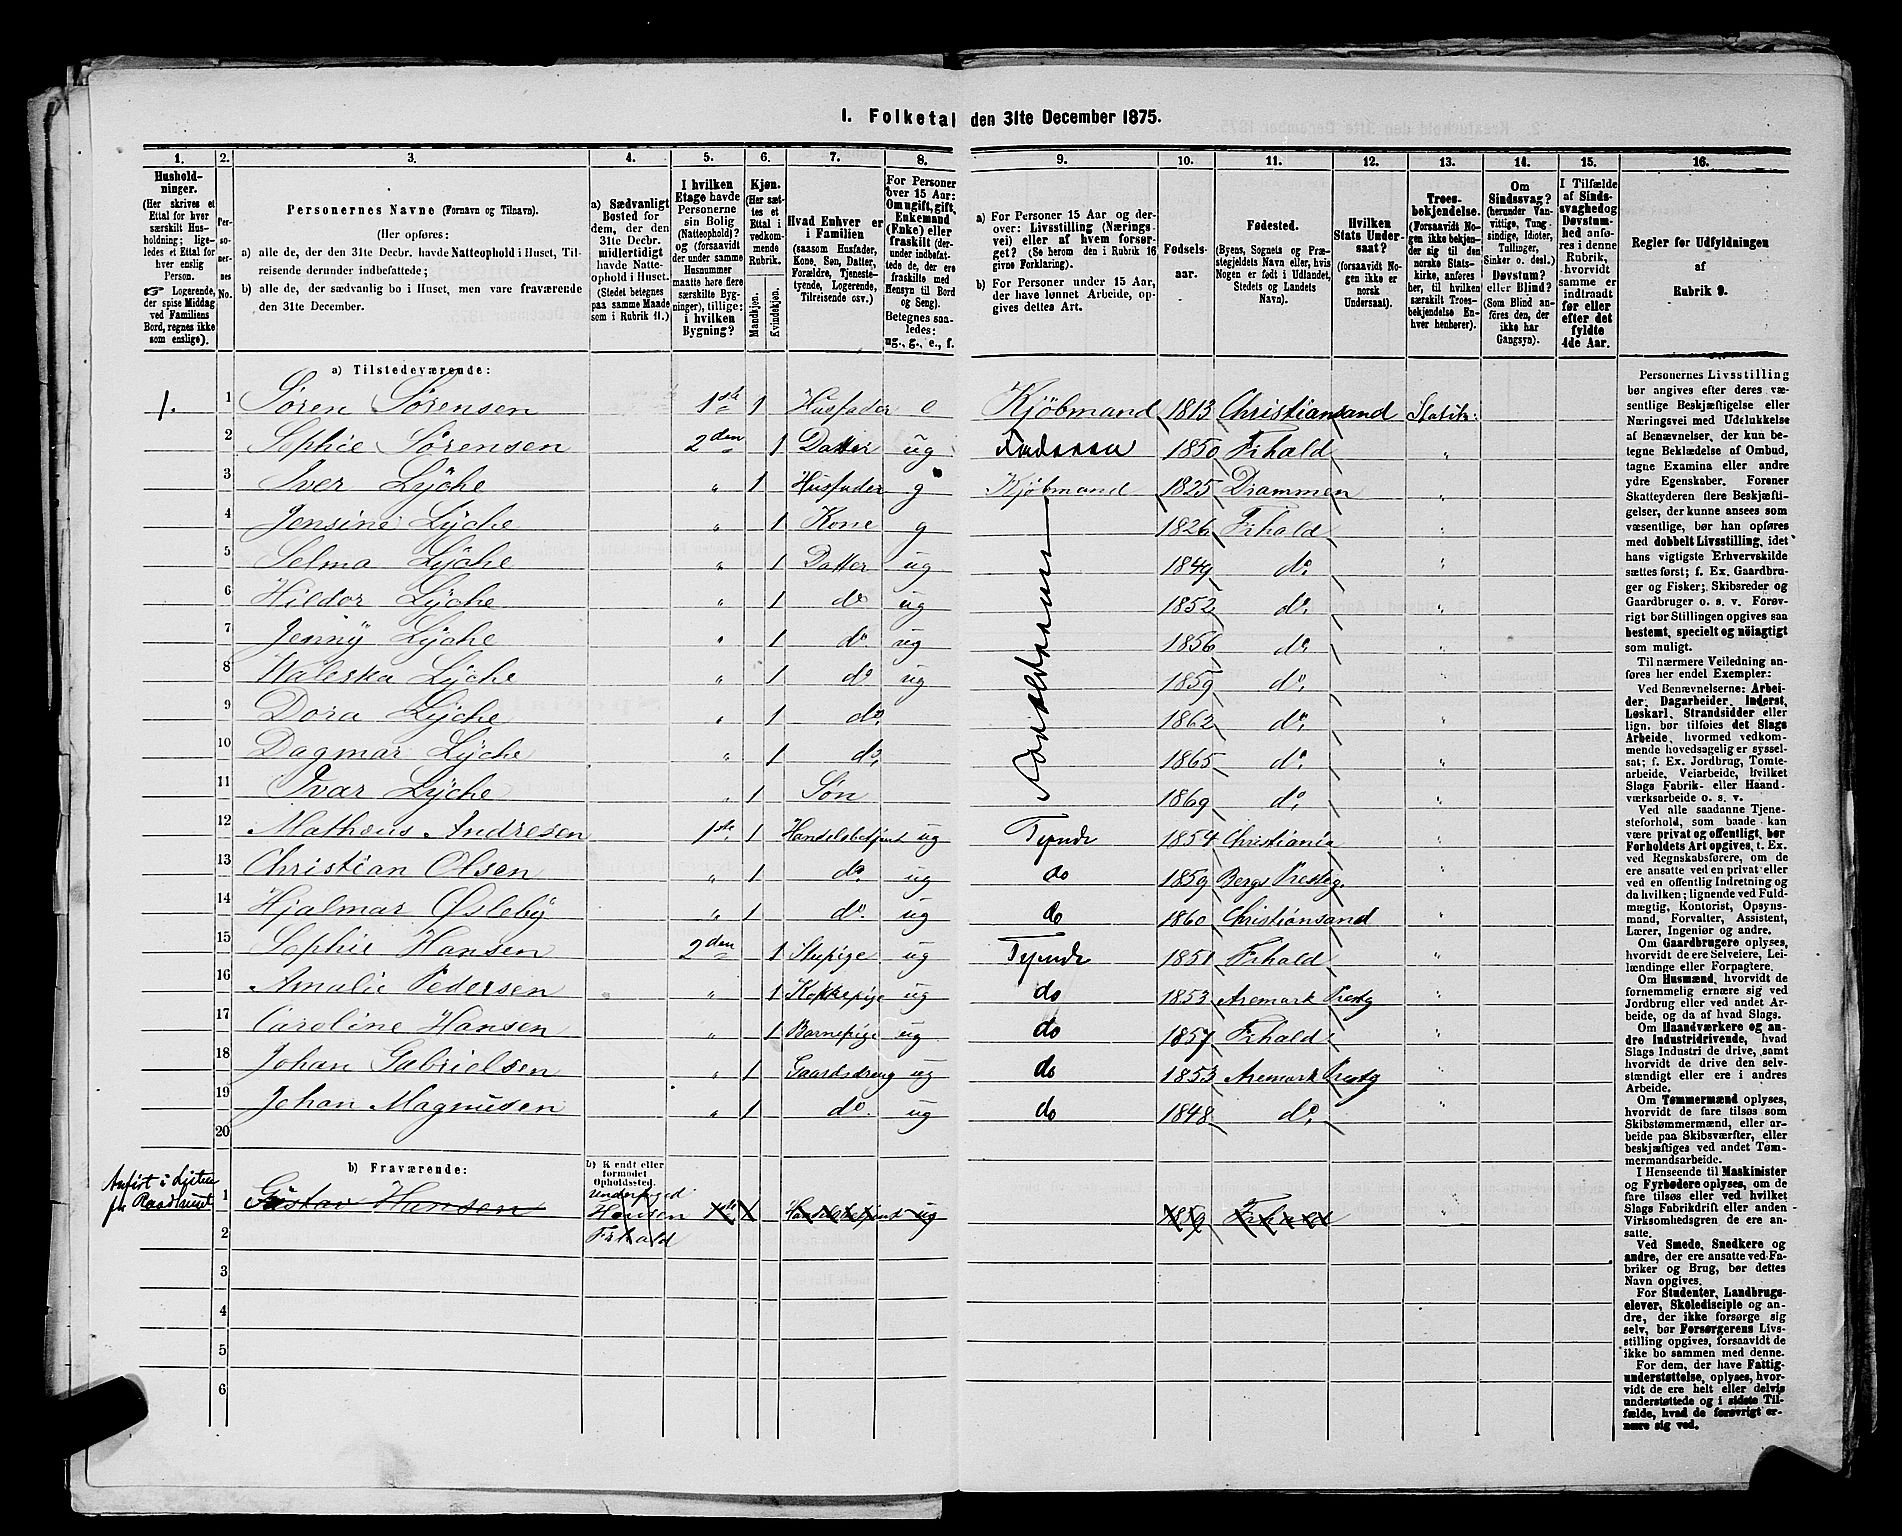 I. Folketal den 31te December 1875.
1. 2. 3. 4. 5. 6. 7. 8. 9. 10. 11. 12. 13. 14. 15. 16.
Hushold-
ninger.
(Her skrives et
Ettal for hver
særskilt Hus-
holdning; lige-
ledes et Ettal for
hver enslig
Person.
☞ Logerende,
der spise Middag
ved Familiens
Bord, regnes ikke
som enslige).
Per-
so-
ner-
nes
No.
Personernes Navne (Fornavn og Tilnavn).
(Her opføres:
a) alle de, der den 31te Decbr. havde Natteophold i Huset, Til-
reisende derunder indbefattede;
b) alle de, der sædvanlig bo i Huset, men vare fraværende
den 31te December.
a) Sædvanligt
Bosted for
dem, der den
31te Decbr.
midlertidigt
havde Natte-
ophold i Huset.
(Stedet betegnes
paa samme Maade
som i Rubrik 11.)
I hvilken
Etage havde
Personerne
sin Bolig
(Natteophold)?
og (forsaavidt
der under samme
Husnummer
maatte høre flere
særskilte Byg-
ninger), tillige:
i hvilken
Bygning?
Kjøn.
(Her sæt-
tes et
Ettal i
vedkom-
mende
Rubrik.
Mandkjøn.
Kvindekjøn.
Hvad Enhver er
i Familien
(saasom Husfader,
Kone, Søn, Datter,
Forældre, Tjeneste-
tyende, Logerende,
Tilreisende osv.)
For Personer
over 15 Aar:
Om ugift, gift,
Enkemand
(Enke) eller
fraskilt (der-
under indbefat-
tede de, der ere
fraskilte med
Hensyn til Bord
og Seng).
Betegnes saa-
ledes:
ug., g., e., f.
a) For Personer 15 Aar og der-
over: Livsstilling (Nærings-
vei) eller af hvem forsør-
get? (Se herom den i Rubrik 16
givne Forklaring).
b) For Personer under 15 Aar,
der have lønnet Arbeide, op-
gives dettes Art.
Fødsels-
aar.
Fødested.
(Byens, Sognets og Præ-
stegjeldets Navn eller, hvis
Nogen er født i Udlandet,
Stedets og Landets
Navn).
Hvilken
Stats Under-
saat?
(forsaavidt No-
gen ikke er
norsk
Undersaat).
Troes-
bekjendelse.
(Forsaavidt No-
gen ikke bekjen-
der sig til den
norske Stats-
kirke, anføres
her, til hvilken
særskilt Troes-
bekjendelse En-
hver henhører).
Om
Sindssvag?
(herunder Van-
vittige, Tung-
sindige, Idioter,
Tullinger,
Sinker o. desl.)
Døvstum?
eller Blind?
(Som Blind an-
føres den, der
ikke har
Gangsyn).
I Tilfælde
af Sinds-
svaghed og
Døvstum-
hed anføres
i denne
Rubrik,
hvorvidt
samme er
indtraadt
før eller
efter det
fyldte
4de Aar.
Regler før Udfyldningen
af
Rubrik 9.
a) Tilstedeværende:
1. 1 Søren Sørensen 1ste 1 Husfader e Kjöbmand 1813 Christiansand Statsk:
2 Sophie Sørensen 2den 1 Datter ug Faderen 1850 Frhald "
3 Iver Lyche " 1 Husfader g Kjöbmand 1825 Drammen "
4 Jensine Lyche " 1 Kone g 1826 Frhald "
5 Selma Lyche " 1 Datter ug 1849 do "
6 Hildor Lyche " 1 do ug 1852 do "
7 Jenny Lyche " 1 do ug 1856 do "
8 Waleska Lyche " 1 do ug 1859 do "
9 Dora Lyche " 1 do 1862 do "
10 Dagmar Lyche " 1 do 1865 do "
11 Ivar Lyche " 1 Søn 1869 do "
12 Matheus Andresen 1ste 1 Handelsbetjent ug Tyende 1854 Christiania "
13 Christian Olsen " 1 do ug do 1859 Bergs Prestg. "
14 Hjalmar Østeby " 1 do. ug do 1860 Christiansand "
15 Sophie Hansen 2den 1 Stupige ug Tyende 1851 Frhald "
16 Amalie Pedersen " 1 Kokkepige ug do 1853 Aremark Prestg "
17 Caroline Hansen " 1 Barnepige ug do 1857 Frhald "
18 Johan Gabrielsen " 1 Gaardsdreng ug do 1853 Aremark Prestg "
19 Johan Magnusen " 1 do. ug do 1848 do "
20
b) Fraværende:
b) Kendt eller
formodet
Opholdssted.
Anført i Listen
for Raadhuset
1 Gustav Hansen Hansen 1ste 1 Handelsbetjent ug 1859 Frhald
2 Frhald
3
4
5
6
Personernes Livsstilling
bør angives efter deres væ-
sentlige Beskjæftigelse eller
Næringsvei med Udelukkelse
af Benævnelser, der kun be-
tegne Beklædelse af Ombud,
tagne Examina eller andre
ydre Egenskaber. Forener
Skatteyderen flere Beskjæfti-
gelser, der kunne ansees som
væsentlige, bør han opføres
med dobbelt Livsstilling, idet
hans vigtigste Erhvervskilde
sættes først; f. Ex. Gaardbru-
ger og Fisker; Skibsreder og
Gaardbruger o. s. v. Forøv-
rigt bør Stillingen opgives saa
bestemt, specielt og nöiagtigt
som muligt.
Til nærmere Veiledning an-
føres her endel Exempler:
Ved Benævnelserne: Arbei-
der, Dagarbeider, Inderst,
Løskarl, Strandsidder eller
lign. bør tilføies det Slags
Arbeide, hvormed vedkom-
mende hovedsagelig er syssel-
sat; f. Ex. Jordbrug, Tomte-
arbeide, Veiarbeide, hvilket
Slags Fabrik- eller Haand-
værksarbeide o. s. v.
Ved alle saadanne Tjene-
steforhold, som baade kan
være privat og offentligt, bør
Forholdets Art opgives, t. Ex.
ved Regnskabsførere, om de
ere ansatte ved en privat eller
ved en offentlig Indretning og
da hvilken; lignende ved Fuld-
mægtig, Kontorist, Opsyns-
mand, Forvalter, Assistent,
Lærer, Ingeniør og andre.
Om Gaardbrugere oplyses,
hvorvidt de ere Selveiere, Lei-
lændinge eller Forpagtere.
Om Husmænd, hvorvidt de
fornemmelig ernære sig ved
Jordbrug eller ved andet Ar-
beide, og da af hvad Slags.
Om Haandværkere og an-
dre Industridrivende, hvad
Slags Industri de drive, samt
hvorvidt de drive den selv-
stændigt eller ere i andres
Arbeide.
Om Tømmermænd oplyses,
hvorvidt de fare tilsøs som
Skibstømmermænd, eller ar-
beide paa Skibsværfter, eller
beskjæftiges ved andet Tøm-
mermandsarbeide.
I Henseende til Maskinister
og Fyrbødere oplyses, om de
fare tilsøs eller ved hvilket
Slags Fabrikdrift eller anden
Virksomhedsgren de ere an-
satte.
Ved Smede, Snedkere og
andre, der ere ansatte ved Fa-
briker og Brug, bør dettes
Navn opgives.
For Studenter, Landbrugs-
elever, Skoledisciple og an-
dre, der ikke forsørge sig
selv, bør Forsørgerens Livs-
stilling opgives, forsaavidt de
ikke bo sammen med denne.
For dem, der have Fattig-
understøttelse, oplyses, hvor-
vidt de ere helt eller delvis
understøttede og i sidste Til-
fælde, hvad de forøvrigt er-
nære sig ved.